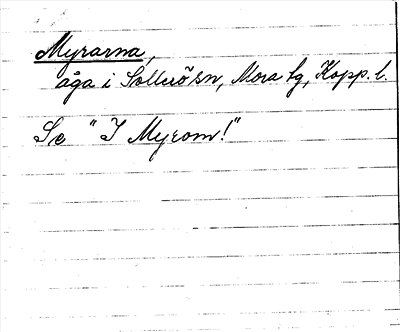 Myrarna,
åga i Sollerö sn, Mora tg, Kopp. l.
Se "I Myrom!"